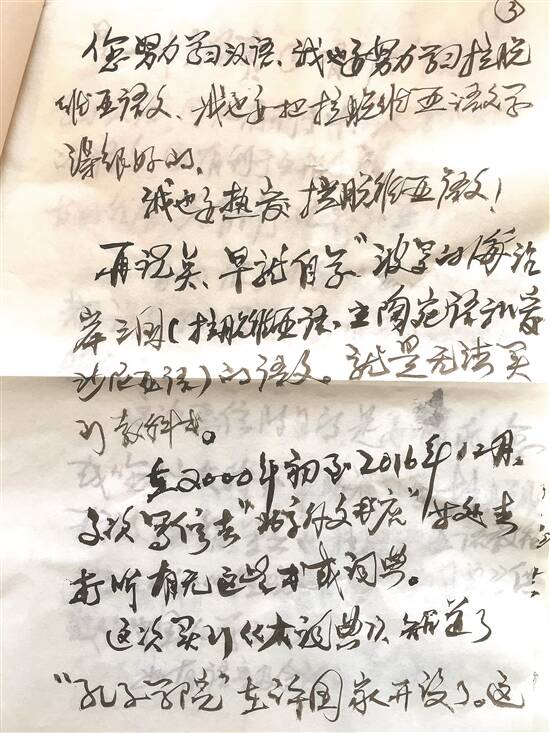 ③
您努力学习汉语、我也要努力学习拉脱
维亚语文、我也要把拉脱维亚语文学
得很好的、
我也要热爱拉脱维亚语文！
再说关、早就自学"波罗的海沿
岸三国（拉脱维亚语、立陶宛语和爱
沙尼亚语）的语文。就是无法买
到教科书。
在2000年初至2016年12月、
多次写信去"北京外文书店"
打听有无这些书或词典。
这次买到你本词典后、知道了
"孔子学院"在许国家开设了。这